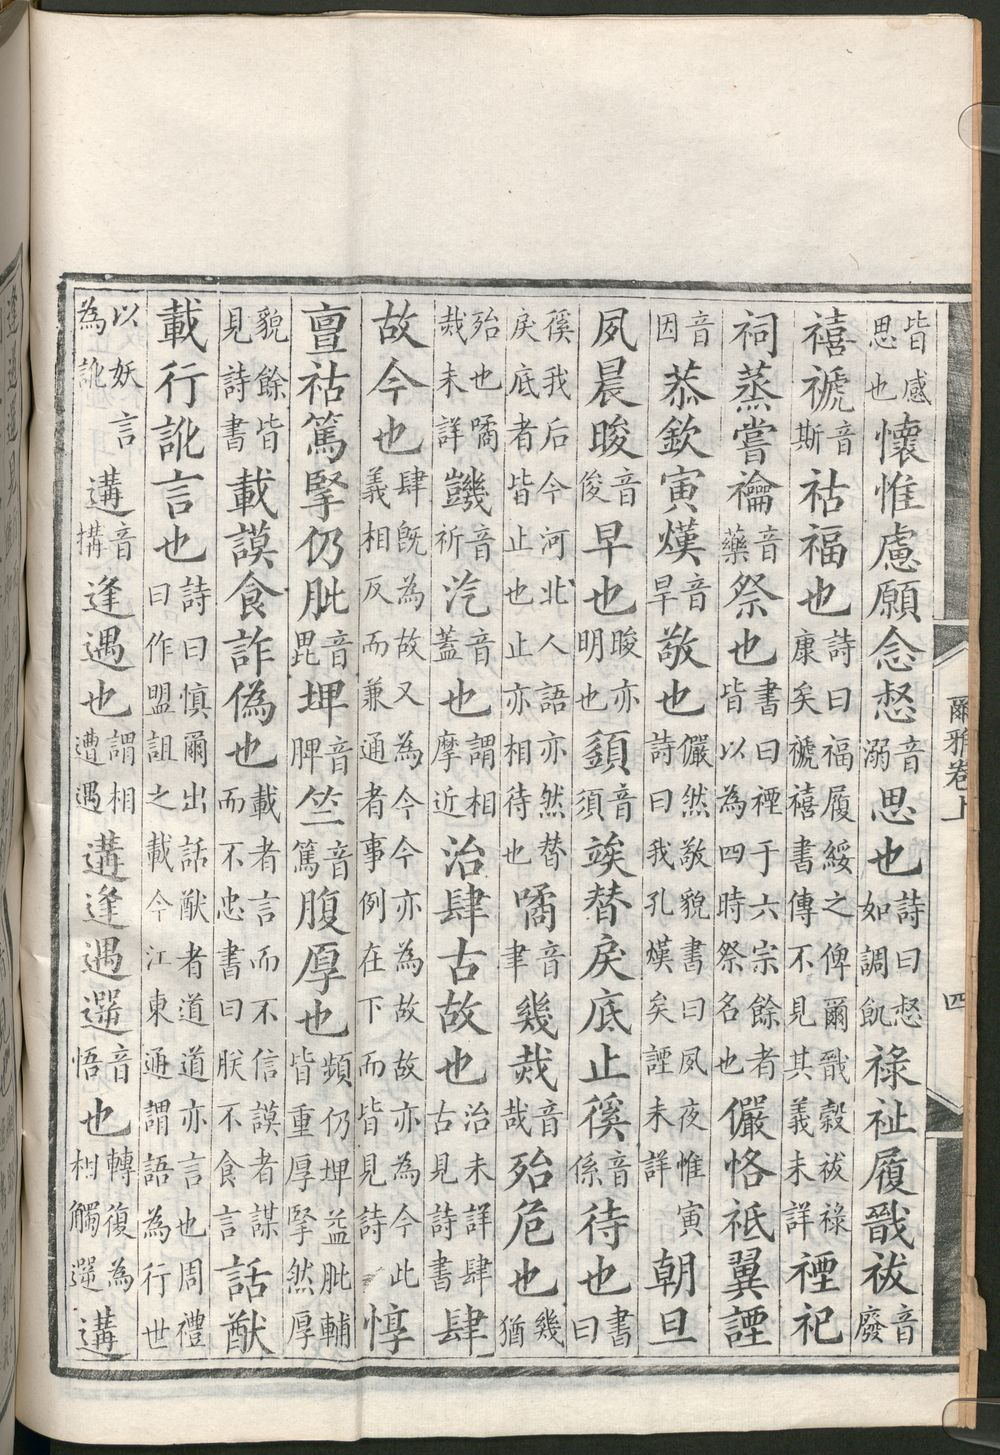 爾雅卷上　四
皆感思也懷惟慮願念惄音溺思也詩曰惄如調飢祿祉履戩祓音廢
禧禠音斯祜福也詩曰福履綏之俾爾戩穀祓祿康矣禠禧書傳不見其義未詳禋祀
祠蒸嘗禴音藥祭也書曰禋于六宗餘者皆以為四時祭名也儼恪祗翼諲
音因恭欽寅熯音旱敬也儼然敬貌書曰夙夜惟寅詩曰我孔熯矣諲未詳朝旦
夙晨晙音俊早也晙亦明也頿音須竢替戾底止徯音係待也書曰
徯我后今河北人語亦然替戾底者皆止也止亦相待也噊音聿幾烖音哉殆危也幾猶
殆也噊烖未詳𧯆音祈汽音蓋也謂相摩近治肆古故也治未詳肆古見詩書肆
故今也肆既為故又為今今亦為故故亦為今此義相反而兼通者事例在下而皆見詩惇
亶祜篤掔仍肶音毘埤音脾竺音篤腹厚也頻仍埤益肶輔皆重厚掔然厚
貌餘皆見詩書載謨食詐偽也載者言而不信謨者謀而不忠書曰朕不食言話猷
載行訛言也詩曰慎爾出話猷者道道亦言也周禮曰作盟詛之載今江東通謂語為行世
以妖言為訛遘音搆逢遇也謂相遭遇遘逢遇遻音悟也轉復為相觸遻遘